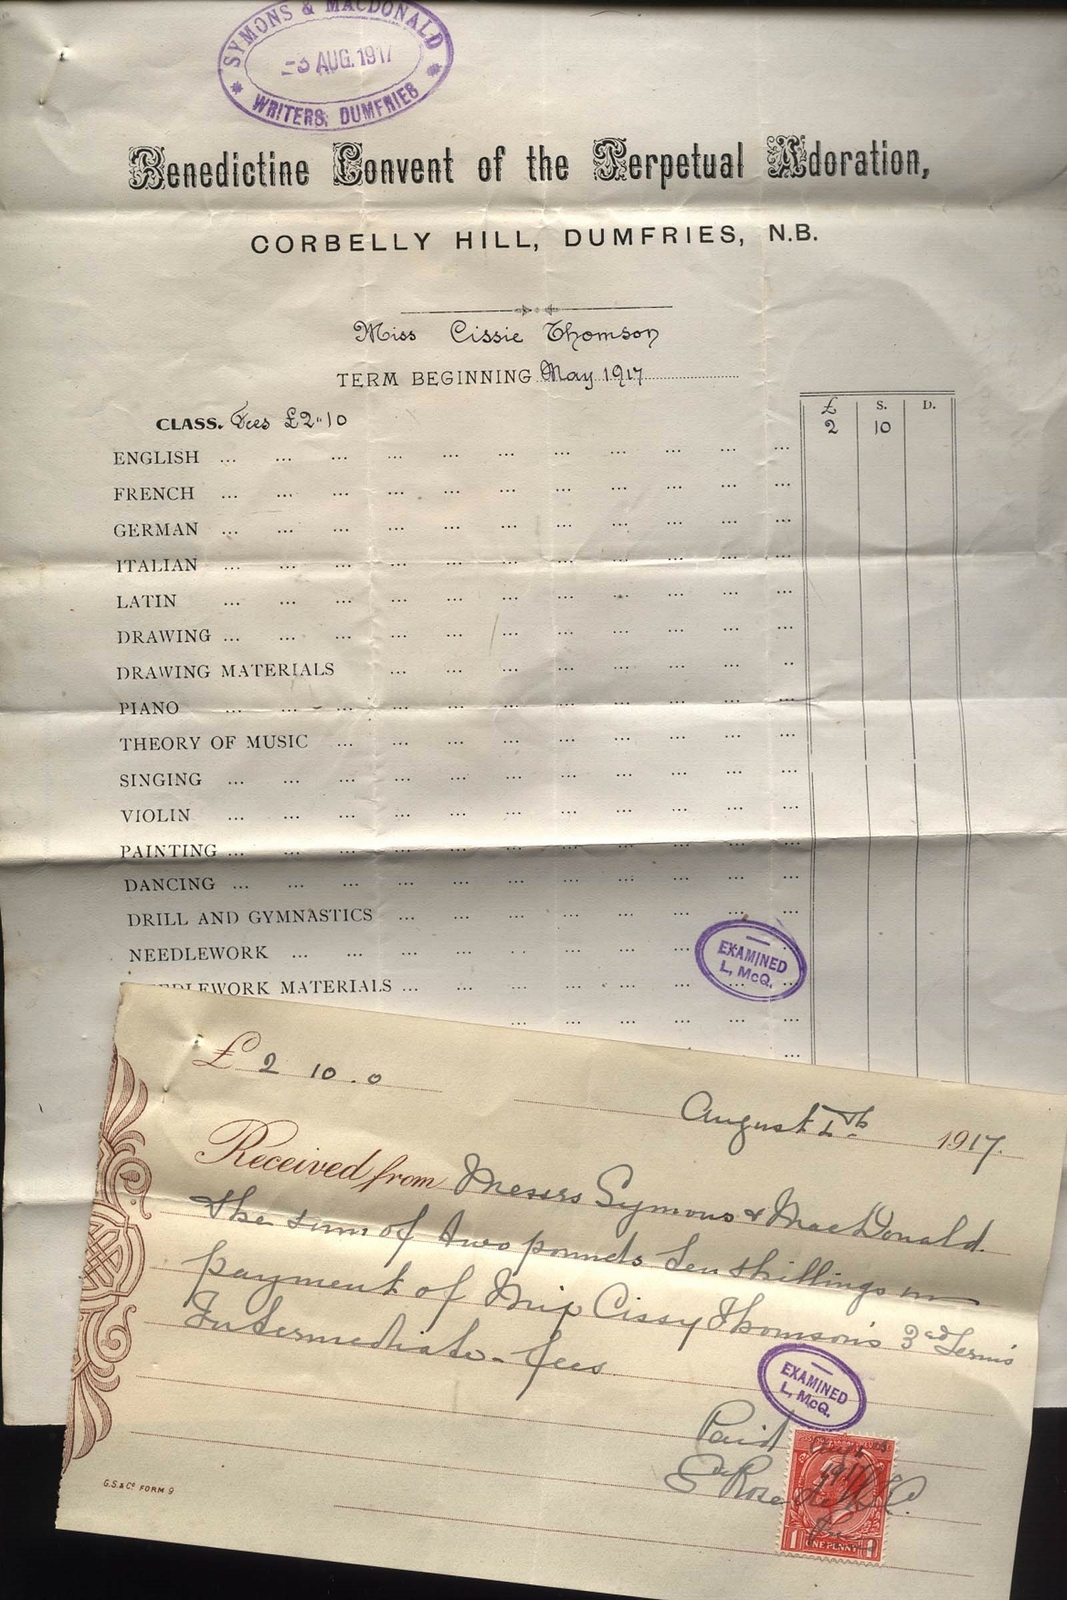 SYMONS & MACDONALD
AUG. 1917
WRITERS, DUMFRIES
Benedictine Convent of the Perpetual Adoration,
CORBELLY HILL, DUMFRIES, N.B.
Miss Cissie Thomson
TERM BEGINNING May 1917
£ S. D.
CLASS. Fees £2"10 2 10
ENGLISH
FRENCH
GERMAN
ITALIAN
LATIN
DRAWING
DRAWING MATERIALS
PIANO
THEORY OF MUSIC
SINGING
VIOLIN
PAINTING
DANCING
DRILL AND GYMNASTICS
NEEDLEWORK
EXAMINED
L, McQ.
NEEDLEWORK MATERIALS
£ 2 10 . 0
August 1917.
Received from Messrs Symons & MacDonald
the sum of two pounds ten shillings in
payment of Miss Cissy Thomson's 3rd Term's
Intermediate - fees
EXAMINED
L, McQ.
Paid
Rose
ONE PENNY
G.S.& Co FORM 9